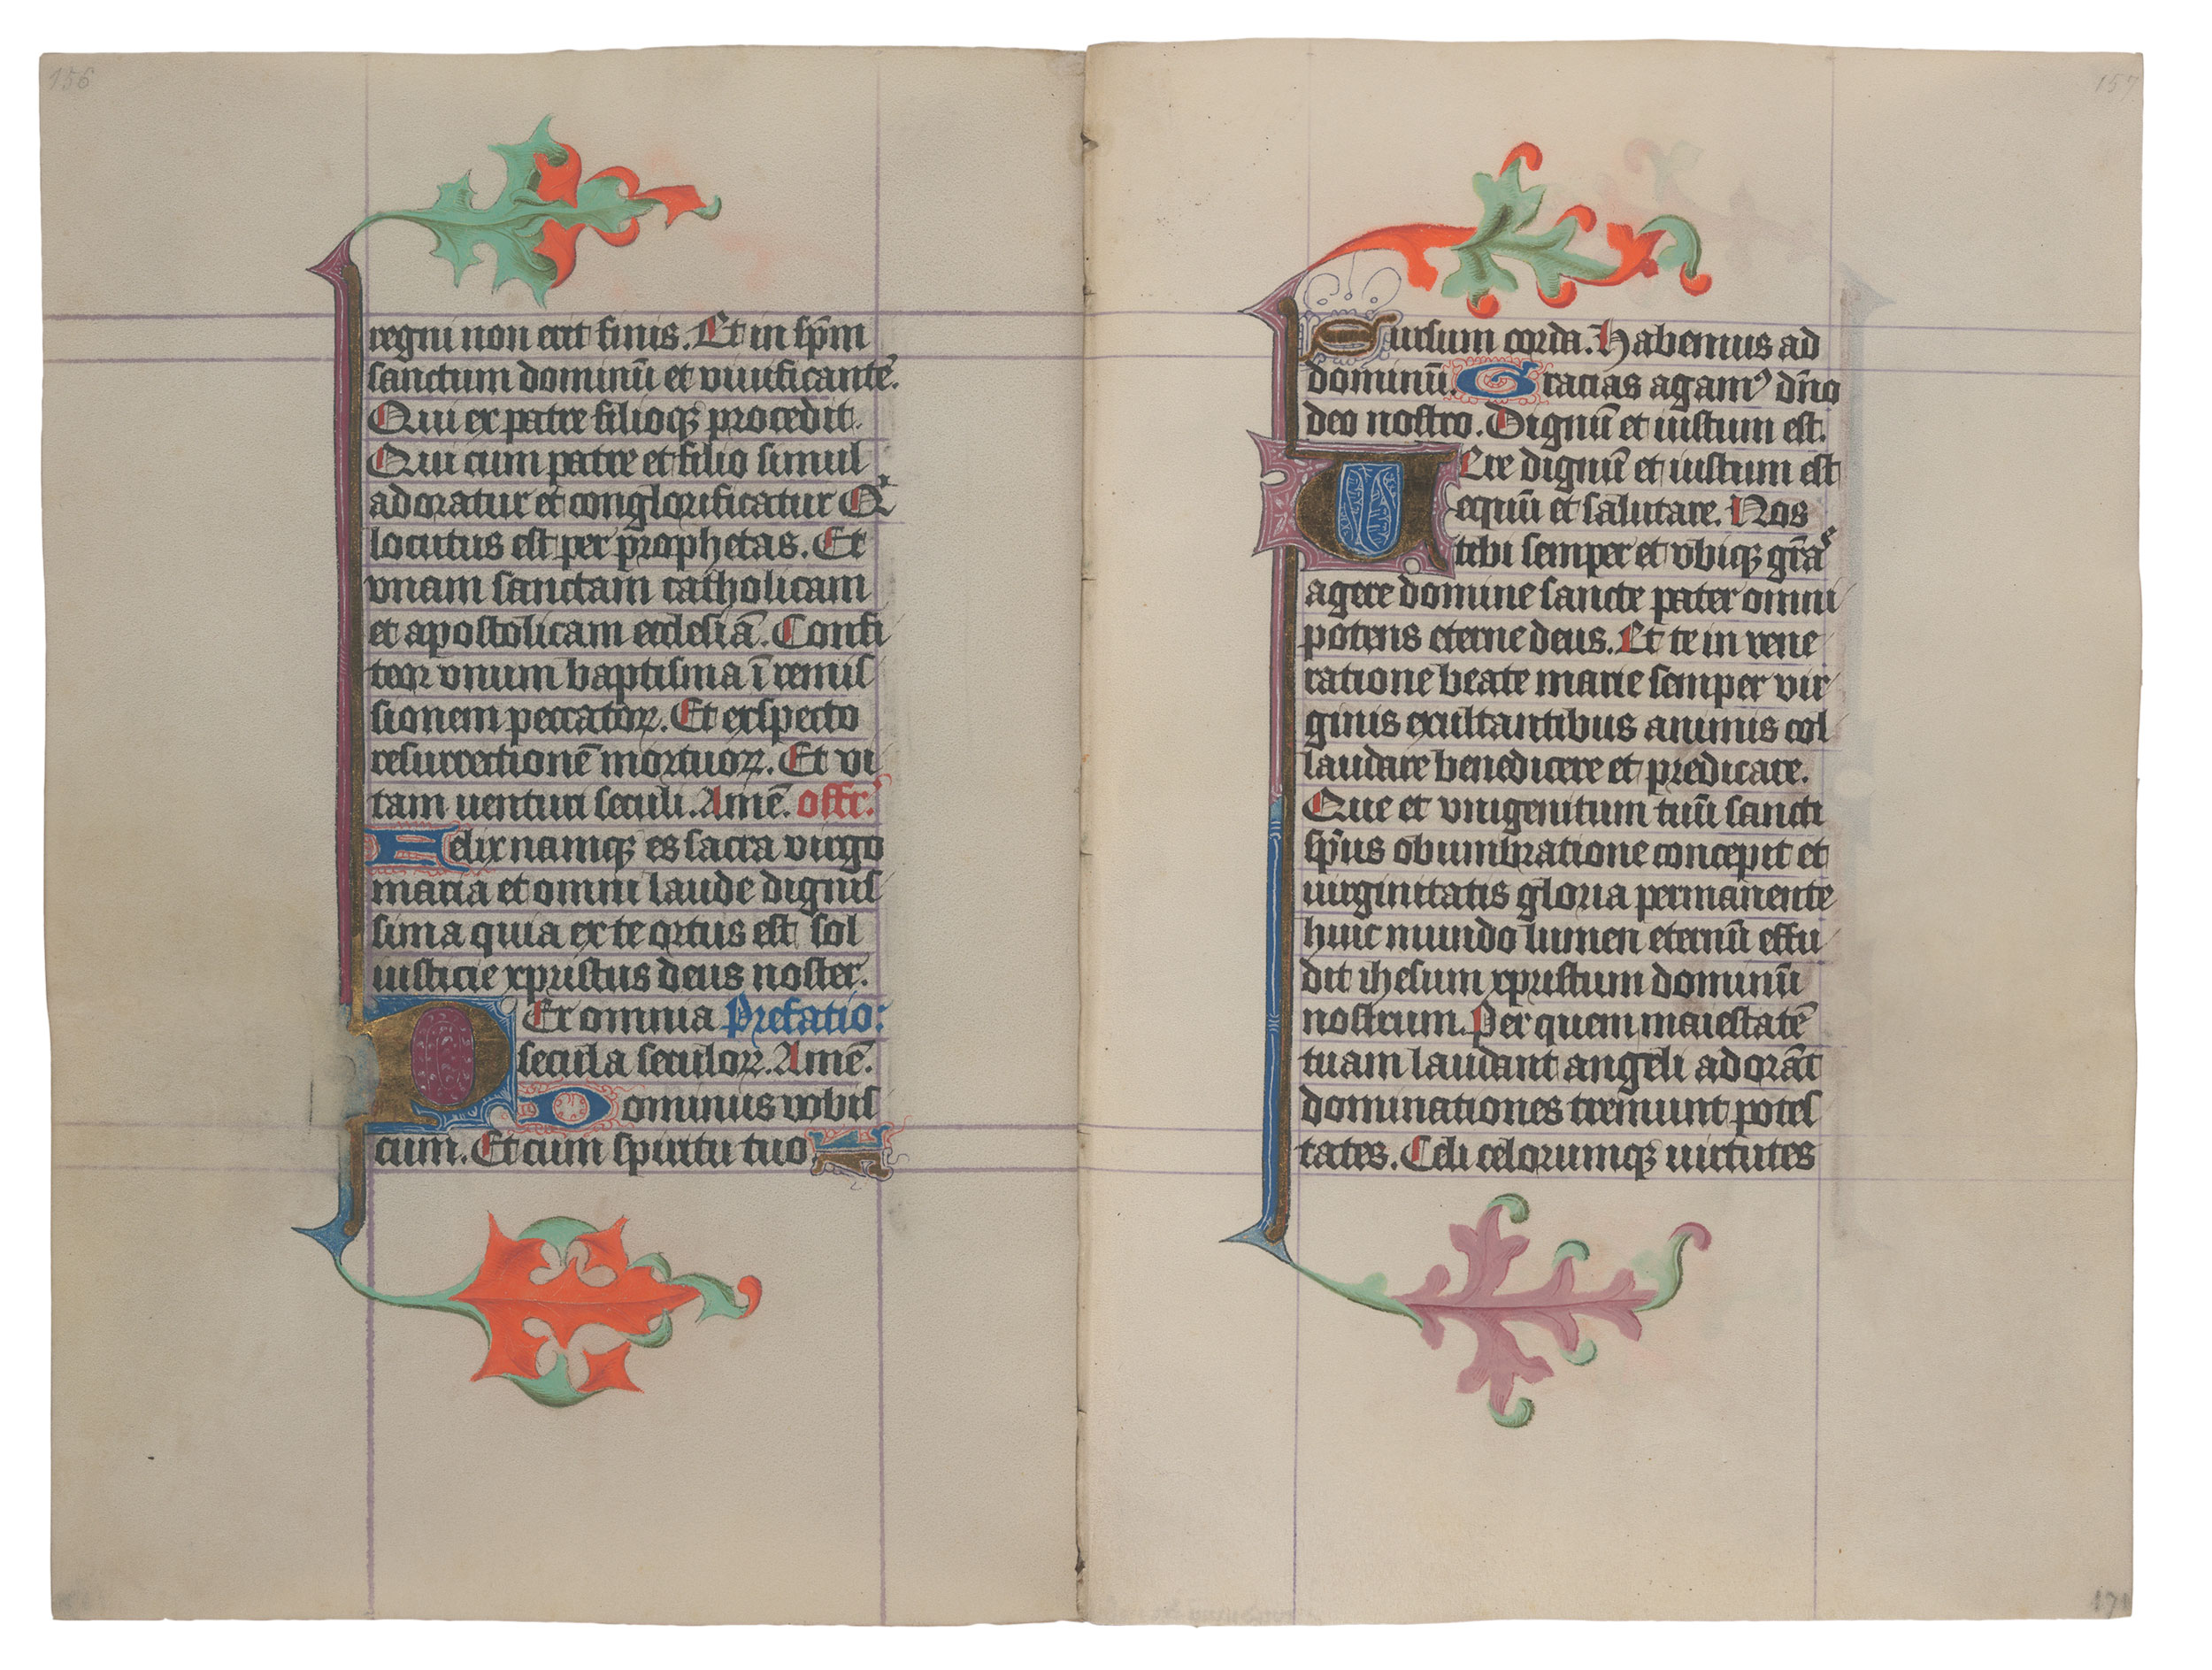 156
regni non erit finis. Et in sp̄m
sanctum dominū et viuificantē.
Qui ex patre filioqꝫ procedit.
Qui cum patre et filio simul
adoratur et conglorificatur Qͥ
locutus est per prophetas. Et
vnam sanctam catholicam
et apostolicam ecclesiā. Confi
teor vnum baptisma ī remis
sionem peccatoꝝ. Et exspecto
resurrectionē mortuoꝝ. Et vi
tam uenturi seculi. Amē. offr̄.
Felix namqꝫ es sacra virgo
maria et omni laude dignis
sima quia ex te ortus est sol
iusticie xpristus deus noster.
Per omnia Prefatio:
secula seculoꝝ. Amē.
Dominus vobis
cum. Et cum spiritu tuo
157
Sursum corda. Habemus ad
dominū. Gracias agamꝰ dn̄o
deo nostro. Dignū et iustum est.
Uere dignū et iustum est
equū et salutare. Nos
tibi semper et vbiqꝫ gr̄aˢ
agere domine sancte pater omni
potens eterne deus. Et te in vene
ratione beate marie semper vir
ginis exultantibus animis col
laudare benedicere et predicare.
Que et vnigenitum tuū sancti
sp̄us obumbratione concepit et
uirginitatis gloria permanente
huic mundo lumen eternū effu
dit ihesum xpristum dominū
nostrum. Per quem maiestatē
tuam laudant angeli adorāt
dominationes tremunt potes
tates. Celi celorumqꝫ uirtutes
171